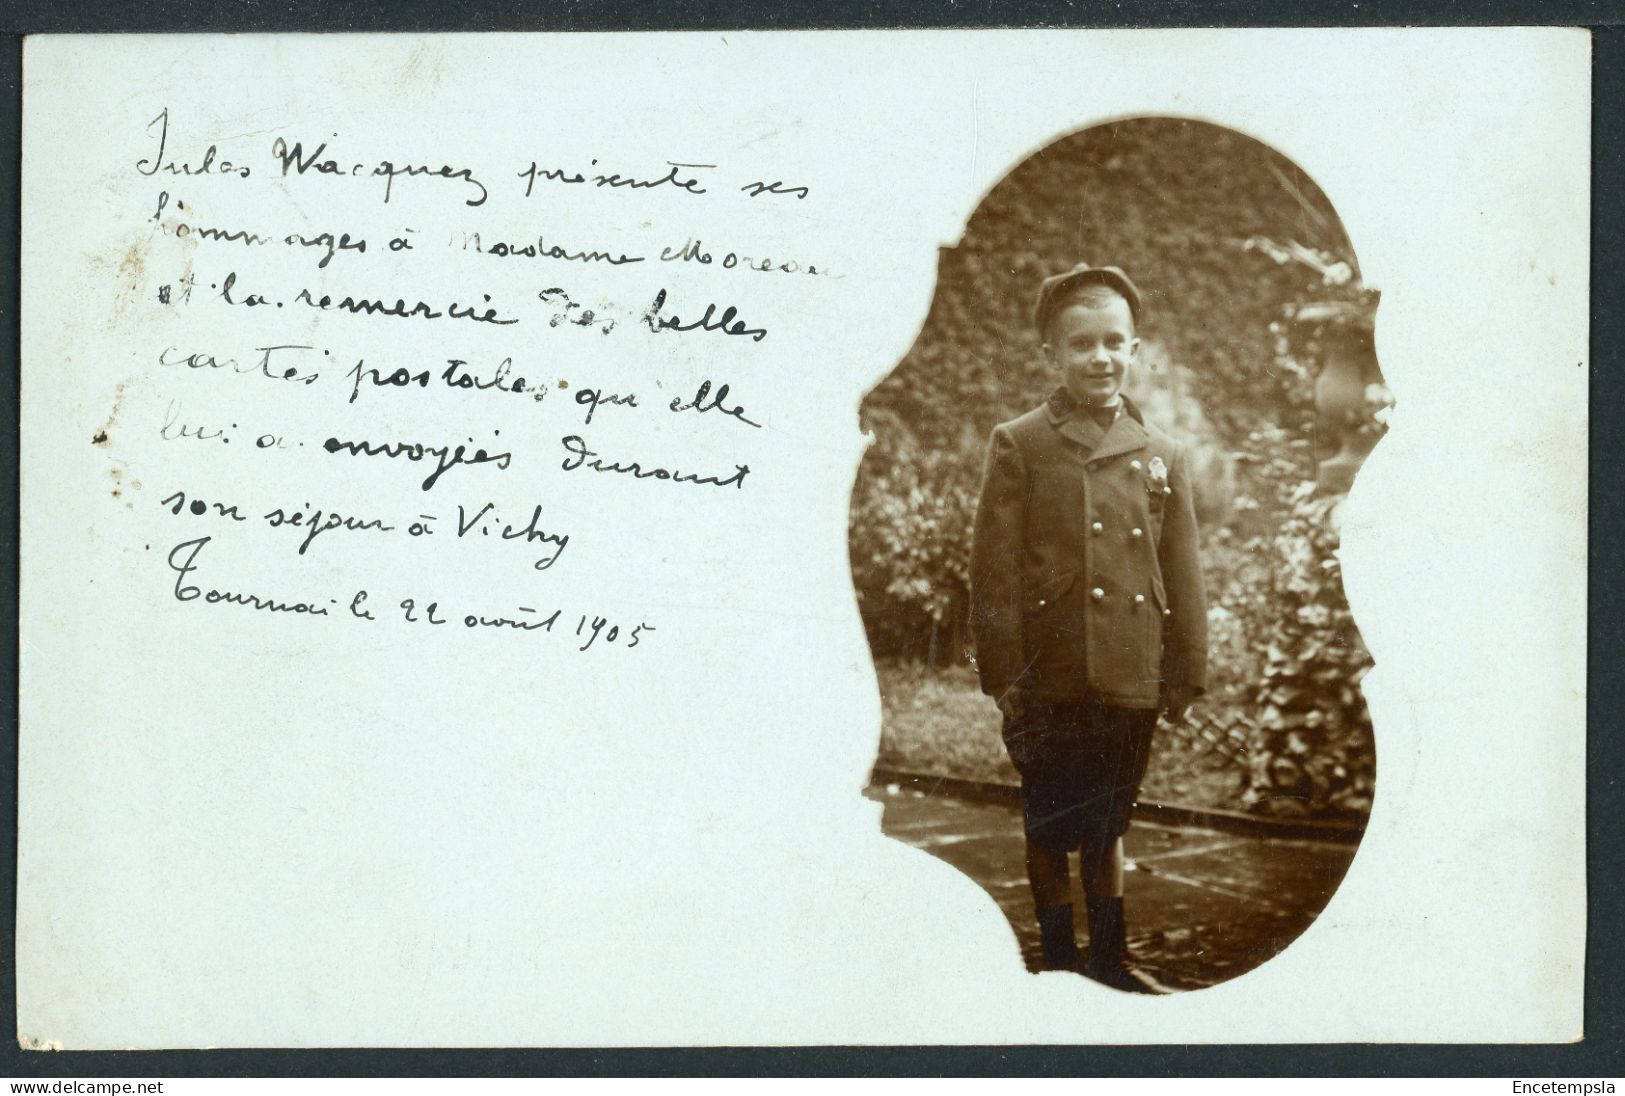 Jules Wacquez présente ses
hommages à Madame Moreau
et la remercie des belles
cartes postales qu'elle
lui a envoyées durant
son séjour à Vichy
Tournai le 22 août 1905
www.delcampe.net
Encetempsla